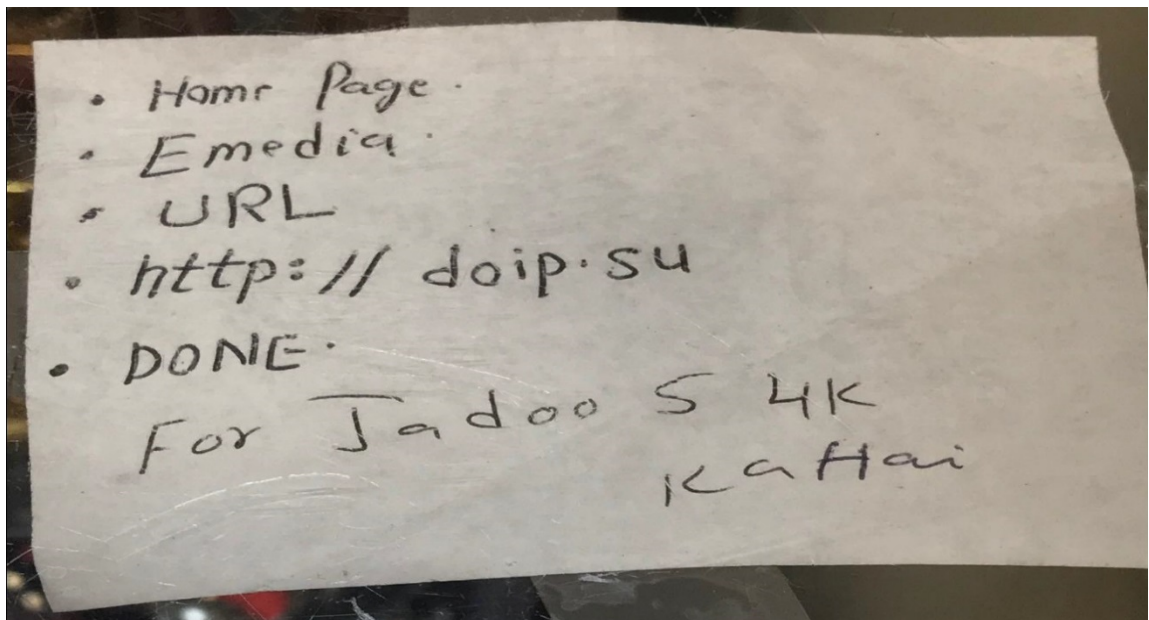 • Home Page.
• Emedia.
• URL
• http:// doip.su
• DONE.
For Jadoo 5 4K
Ka Hai